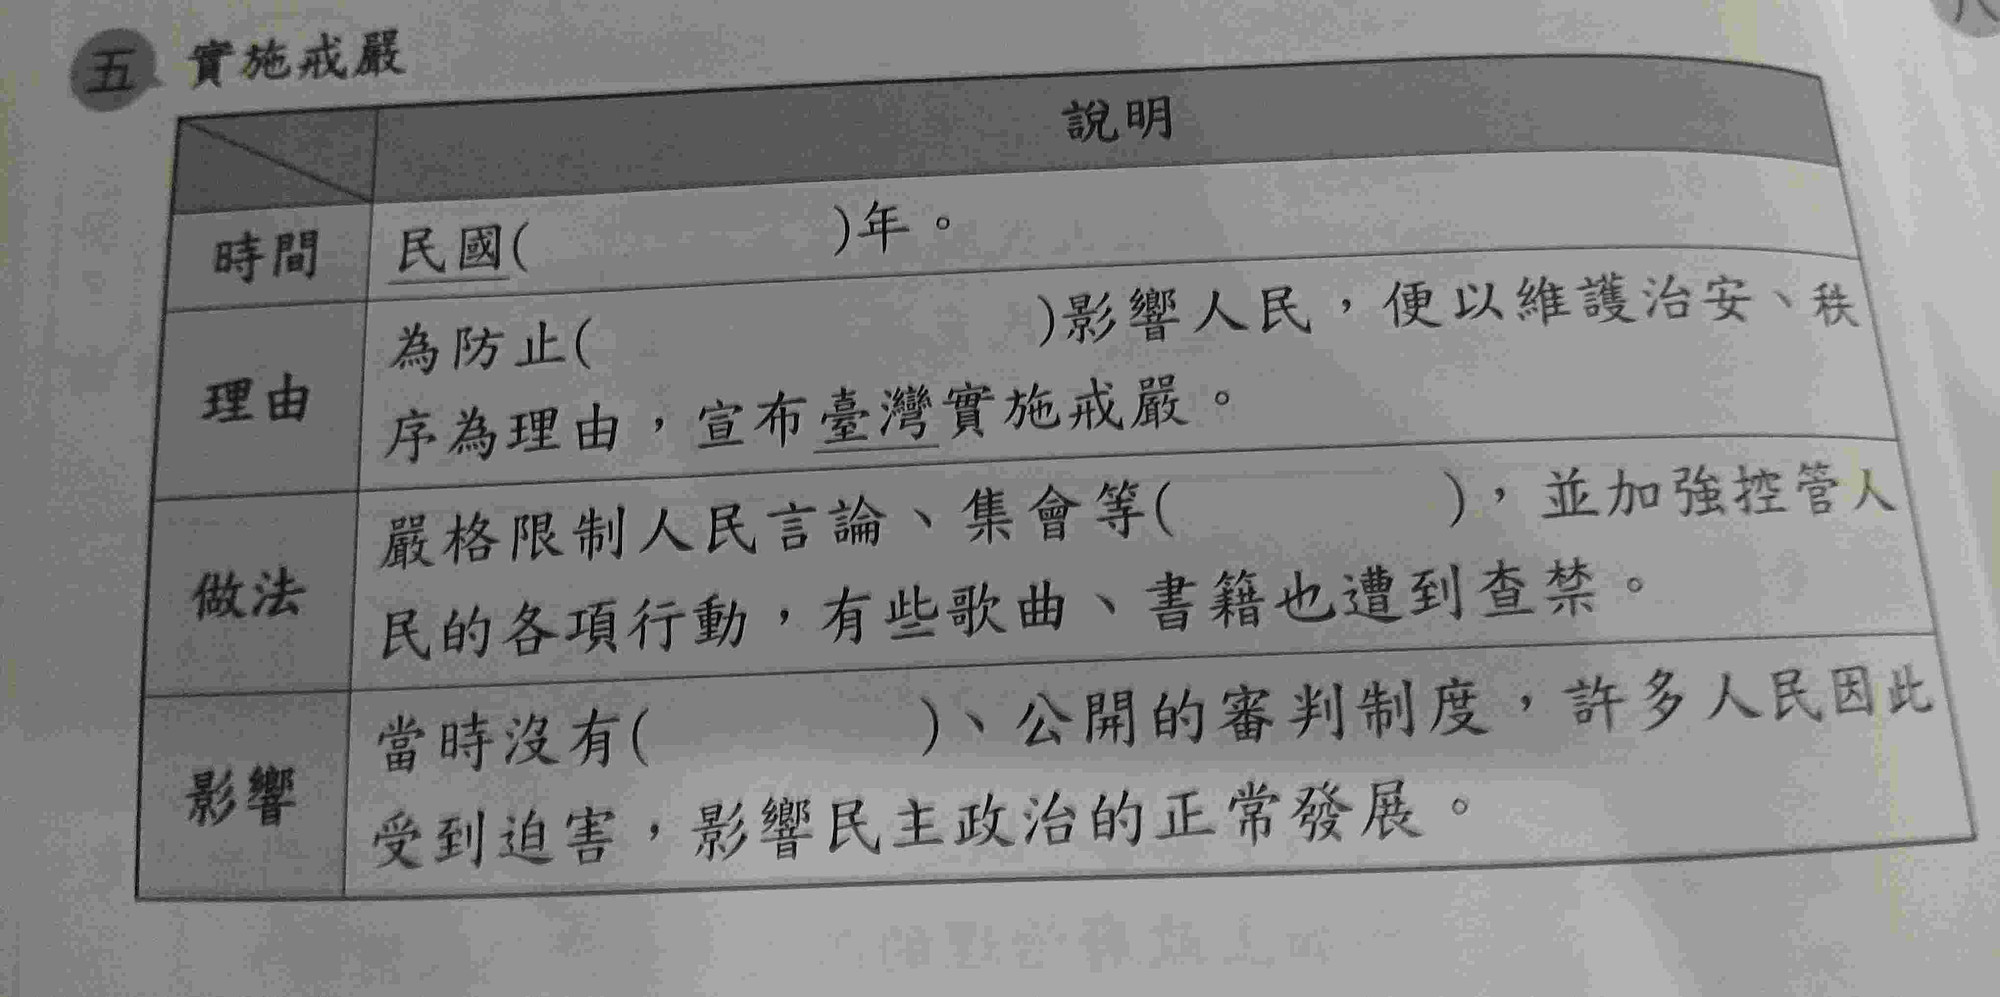 五 實施戒嚴
說明
時間 民國( )年。
理由 為防止( )影響人民，便以維護治安、秩
序為理由，宣布臺灣實施戒嚴。
做法 嚴格限制人民言論、集會等( )，並加強控管人
民的各項行動，有些歌曲、書籍也遭到查禁。
影響 當時沒有( )、公開的審判制度，許多人民因此
受到迫害，影響民主政治的正常發展。